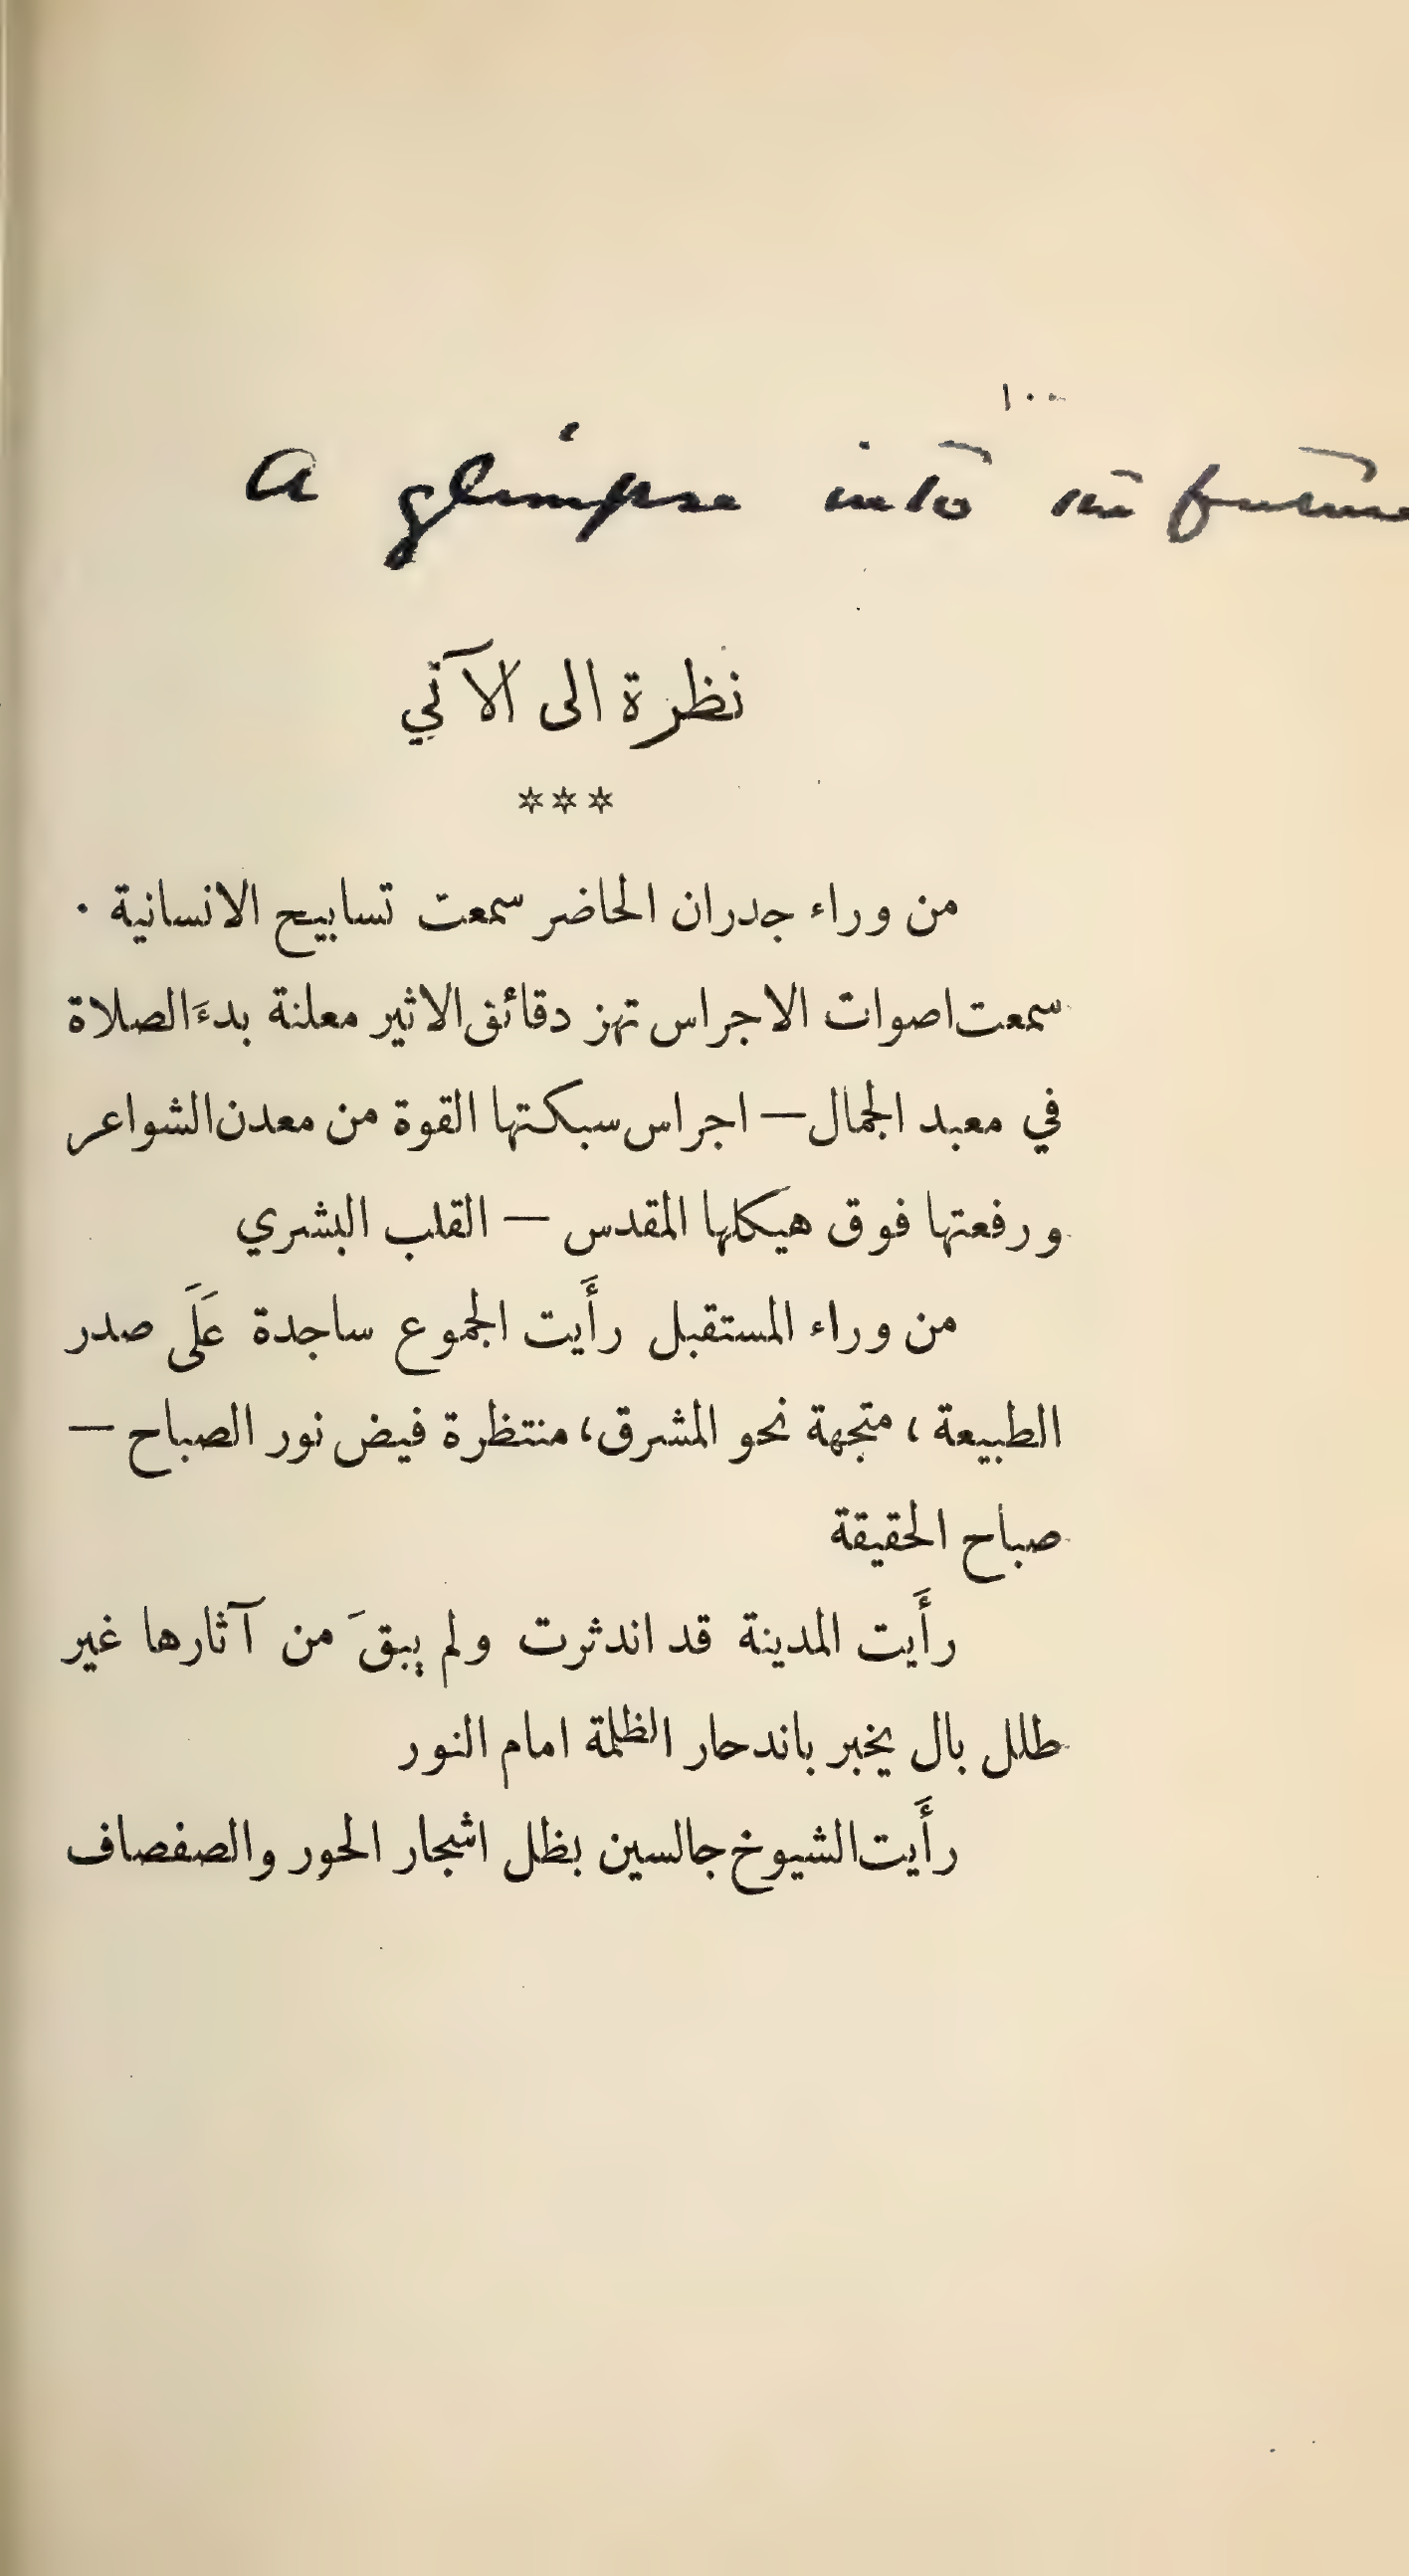 ١٠٠
A glimpse into the future
نظرة الى الآتي
***
من وراء جدران الحاضر سمعت تسابيح الانسانية ٠
سمعت اصوات الاجراس تهز دقائق الاثير معلنة بدءَ الصلاة
في معبد الجمال — اجراس سبكتها القوة من معدن الشواعر
ورفعتها فوق هيكلها المقدس — القلب البشري
من وراء المستقبل رأَيت الجموع ساجدة عَلَى صدر
الطبيعة ، متجهة نحو المشرق، منتظرة فيض نور الصباح —
صباح الحقيقة
رأَيت المدينة قد اندثرت ولم يبقَ من آثارها غير
طلل بال يخبر باندحار الظلمة امام النور
رأَيت الشيوخ جالسين بظل اشجار الحور والصفصاف